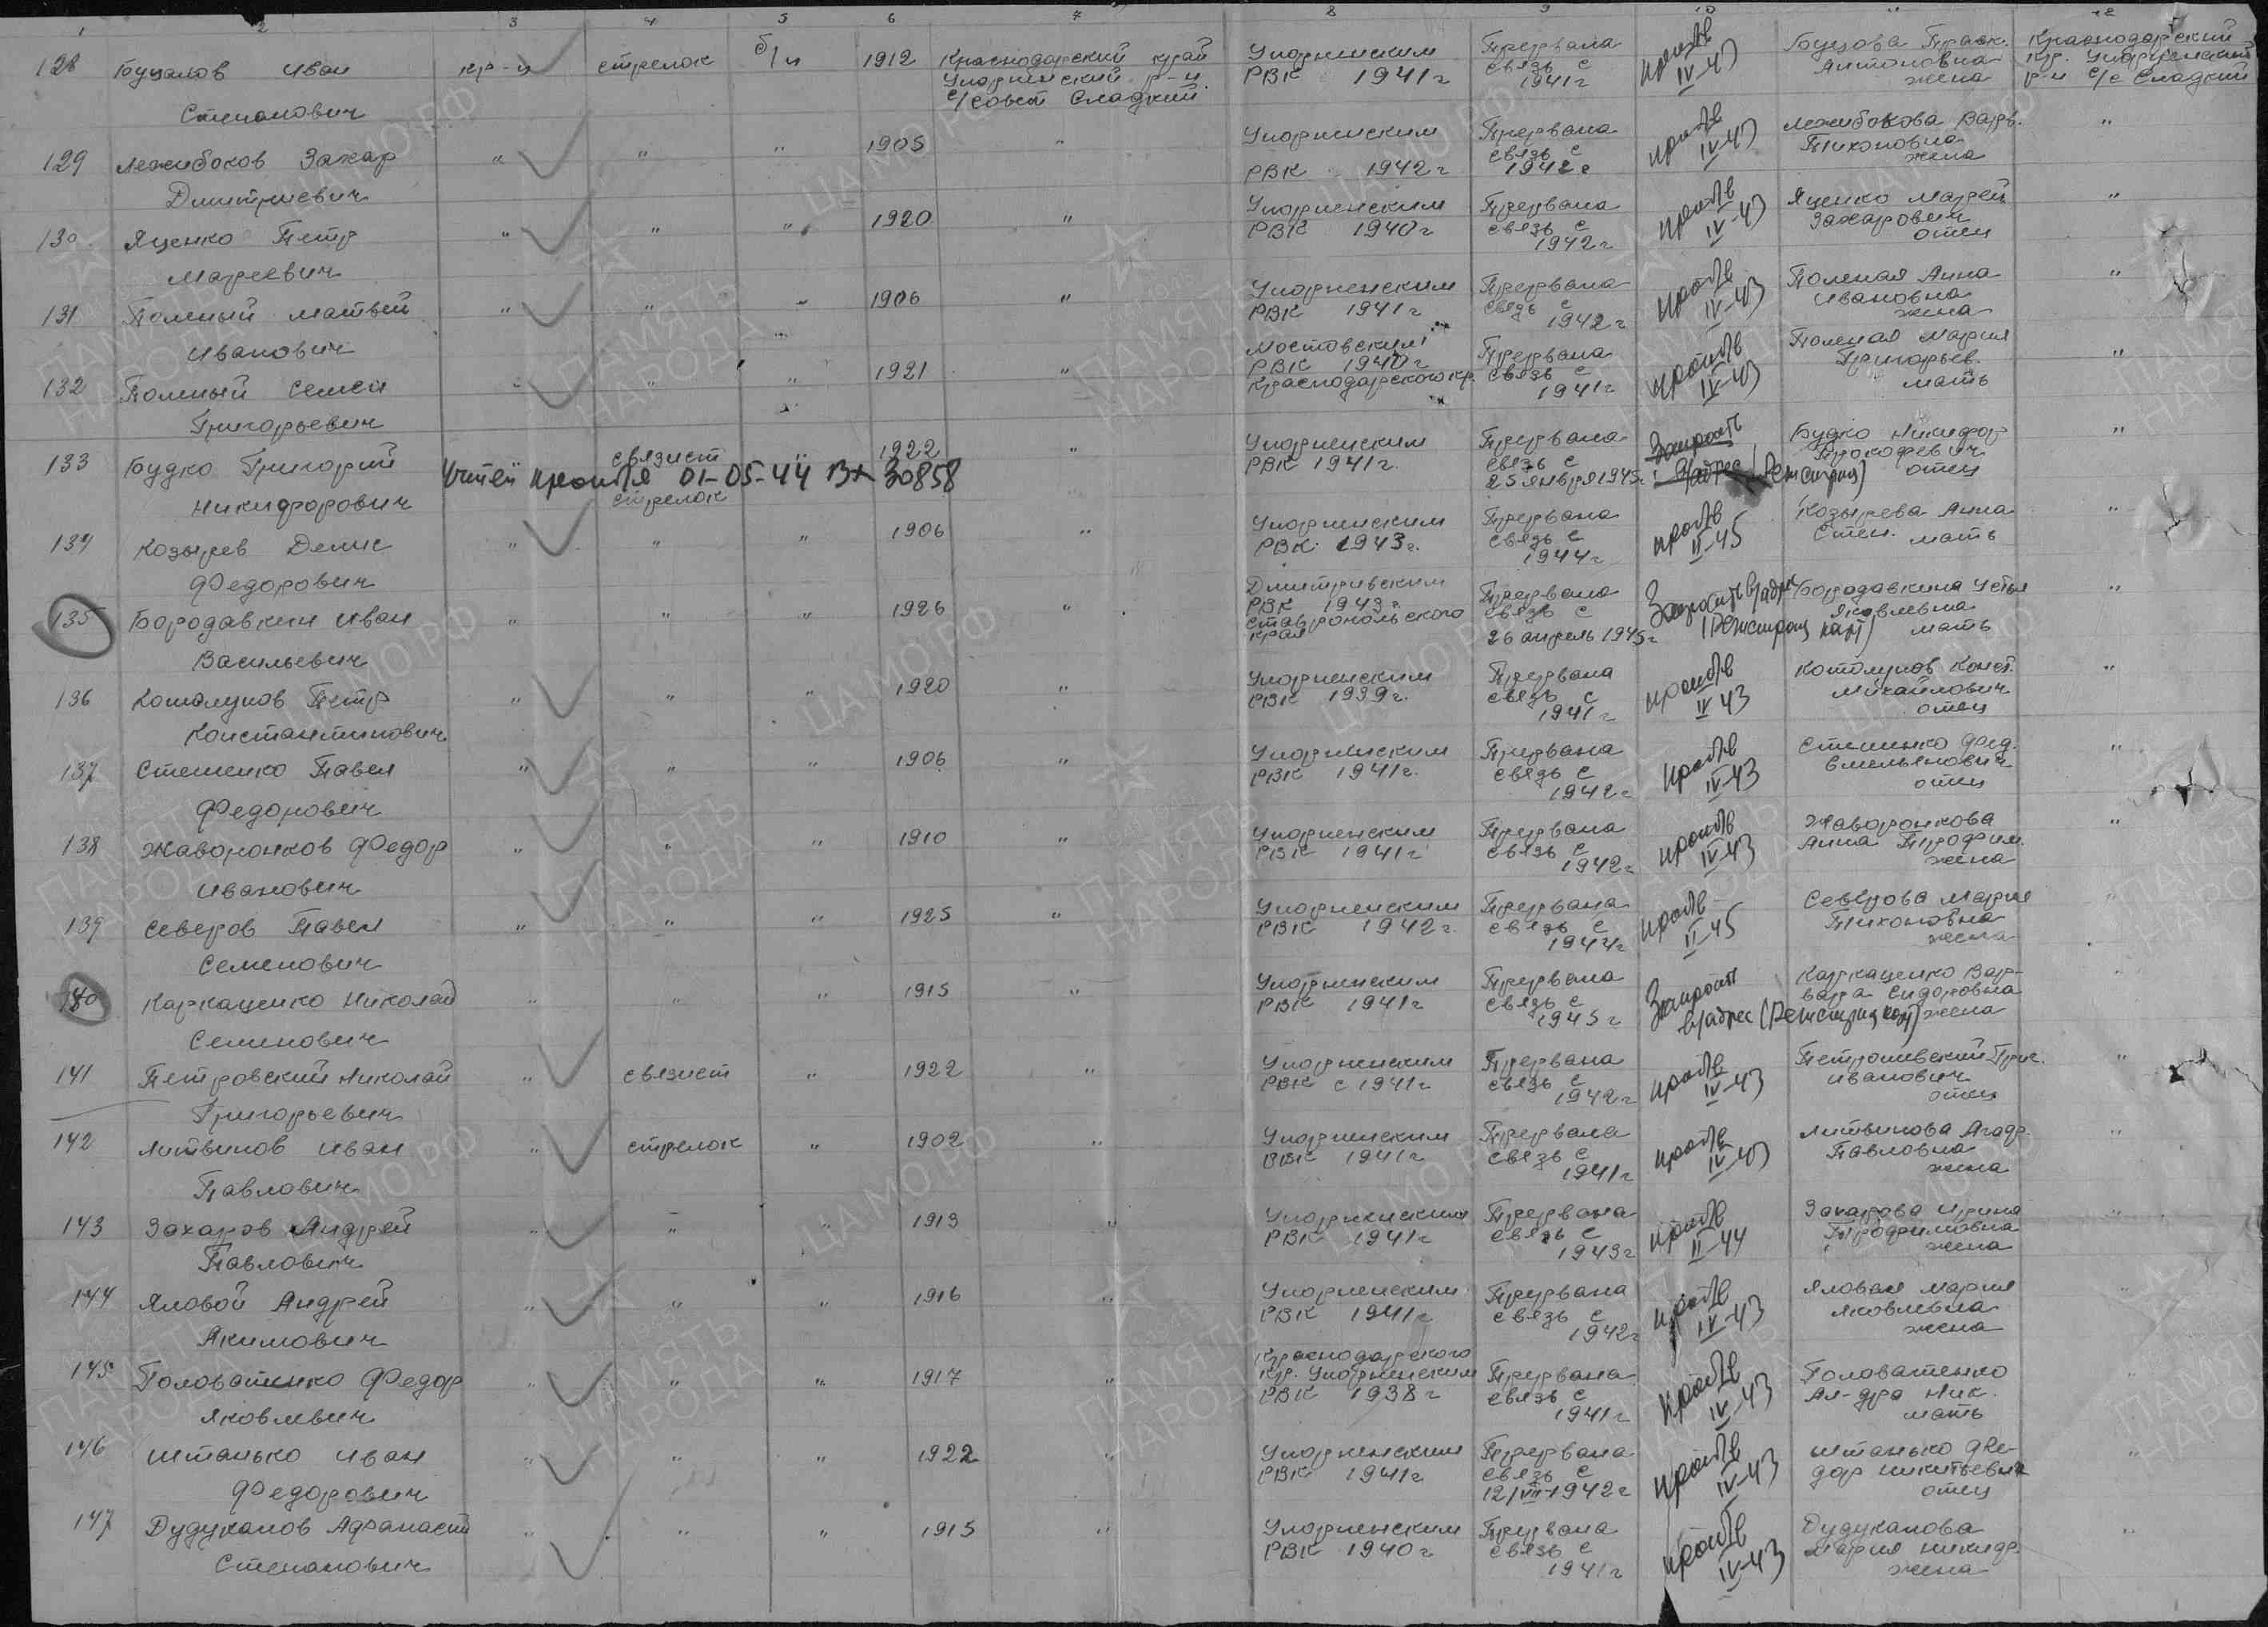 1 2 3 4 5 6 7 8 9 10 11 12
128 Иван Степанович кр-ц стрелок б/п 1912 Краснодарский край Упорненский р-н с/совет Сладкий Упорненским РВК 1941г Прервана связь с 1941г IV-43 Антоновна жена Краснодарский кр. Упорненский р-н с/с Сладкий
129 Межибоков Захар Дмитриевич " " " 1905 " Упорненским РВК 1942г Прервана связь с 1942г IV-43 Межибокова Варв. Тихоновна жена "
130 Яценко Петр Мареевич " " " 1920 " Упорненским РВК 1940г Прервана связь с 1942г IV-43 Яценко Марей Захарович отец "
131 Матвей Иванович " " " 1906 " Упорненским РВК 1941г Прервана связь с 1942г IV-43 Анна Ивановна жена "
132 Семен Григорьевич " " " 1921 " Мостовским РВК 1940г Краснодарского кр. Прервана связь с 1941г IV-43 Мария Григорьев. мать "
133 Будко Григорий Никифорович связист 1922 " Упорненским РВК 1941г. Прервана связь с 25 января 1945г. Будко Никифор Прокофьевич отец "
01-05-44 Вх 30858
стрелок
134 Козырев Денис Федорович " " " 1906 " Упорненским РВК 1943г. Прервана связь с 1944г II-45 Козырева Анна Степ. мать "
135 Бородавкин Иван Васильевич " " " 1926 " Дмитривским РВК 1943г. Ставропольского края Прервана связь с 26 апрель 1945г Бородавкина Устья Яковлевна мать "
136 Котолупов Петр Константинович " " " 1920 " Упорненским РВК 1939г. Прервана связь с 1941г IV 43 Котолупов Конст. Михайлович отец "
137 Стешенко Павел Федорович " " " 1906 " Упорненским РВК 1941г. Прервана связь с 1942г IV-43 Стешенко Фед. Емельянович отец "
138 Жаворонков Федор Иванович " " " 1910 " Упорненским РВК 1941г Прервана связь с 1942г IV-43 Жаворонкова Анна Трофим. жена "
139 Северов Павел Семенович " " " 1925 " Упорненским РВК 1942г. Прервана связь с 1944г II-45 Северова Мария Тихоновна жена "
140 Каркаценко Николай Семенович " " " 1915 " Упорненским РВК 1941г Прервана связь с 1945г Каркаценко Варвара Сидоровна жена "
141 Петровский Николай Григорьевич " связист " 1922 " Упорненским РВК с 1941г Прервана связь с 1942г IV-43 Григ. Иванович отец "
142 Литвинов Иван Павлович " стрелок " 1902 " Упорненским РВК 1941г Прервана связь с 1941г IV-43 Литвинова Агаф. Павловна жена "
143 Захаров Андрей Павлович " " " 1913 " Упорненским РВК 1941г Прервана связь с 1943г II-44 Захарова Ирина Трофимовна жена "
144 Яловой Андрей Акимович " " " 1916 " Упорненским РВК 1941г Прервана связь с 1942г IV-43 Яловая Мария Яковлевна жена "
145 Головатенко Федор Яковлевич " " " 1917 " Краснодарского кр. Упорненским РВК 1938г Прервана связь с 1941г IV-43 Головатенко Ал-дра Ник. мать "
146 Штанько Иван Федорович " " " 1922 " Упорненским РВК 1941г Прервана связь с 12/VII-1942г IV-43 Штанько Федор Никитьевич отец "
147 Дудуканов Афанасий Степанович " " " 1915 " Упорненским РВК 1940г Прервана связь с 1941г IV-43 Дудуканова Мария Никифр. жена "